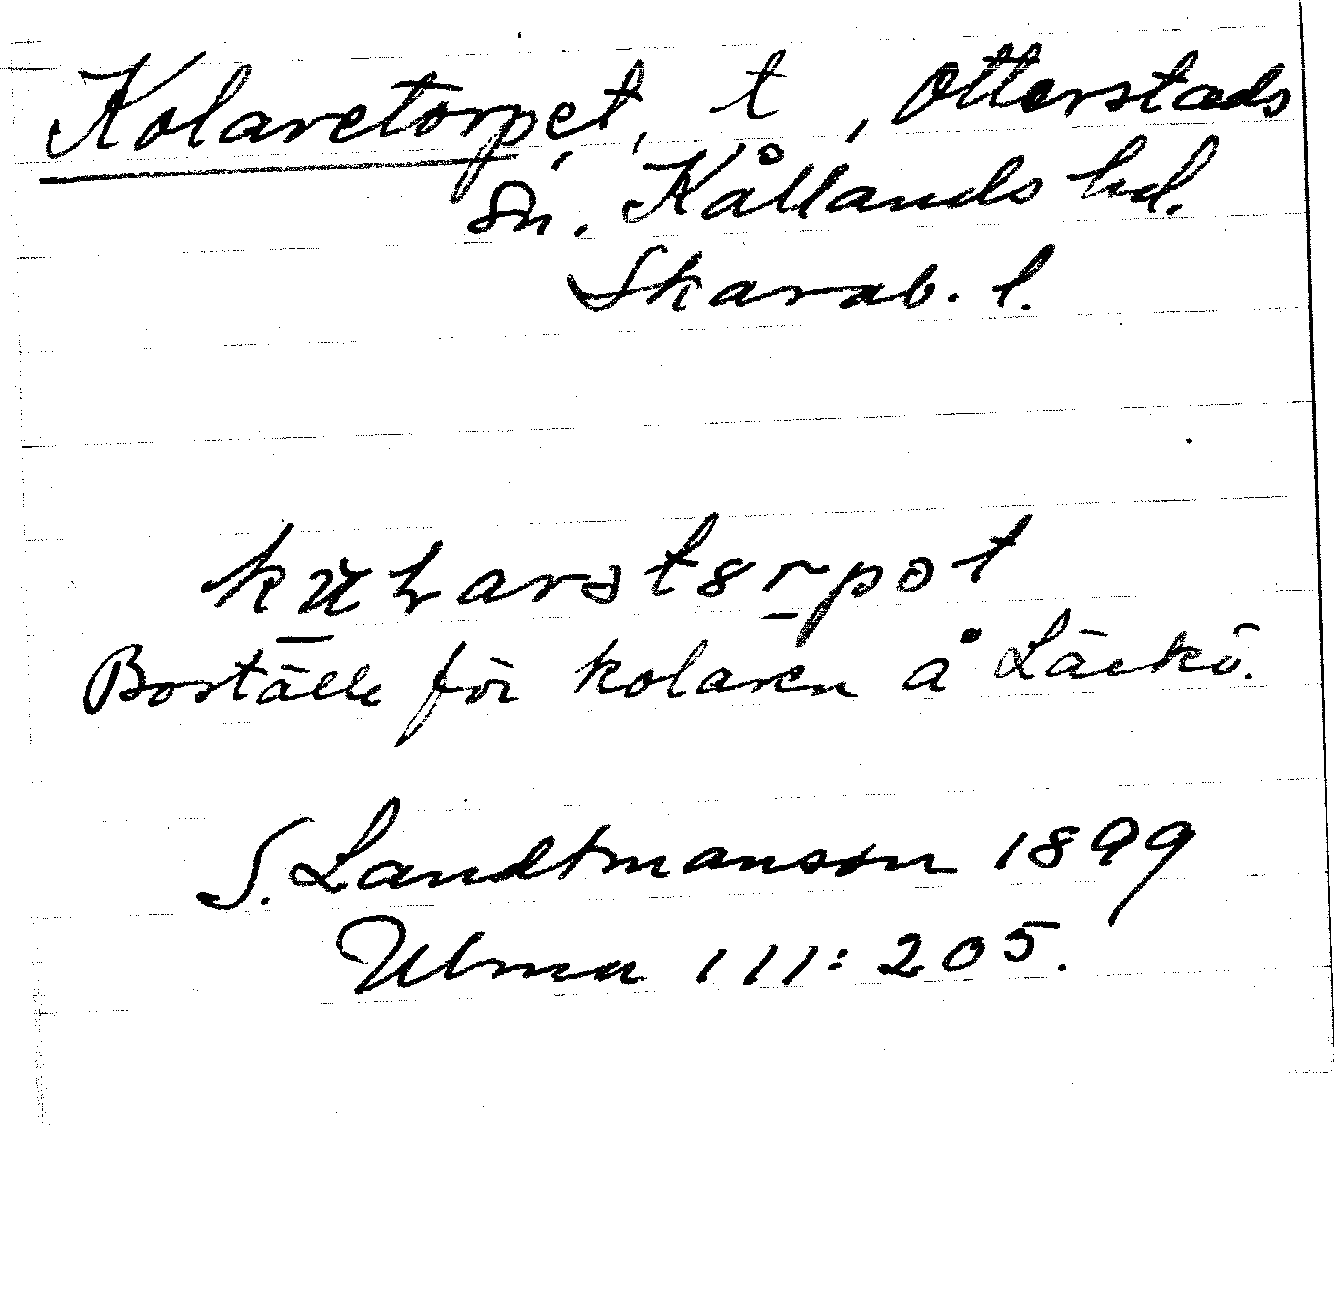 Kolaretorpet, t, Otterstads
sn. Kållands hd.
Skarab. l.
Boställe för kolaren å Läckö.
S. Landtmanson 1899
Ulma 111:205.